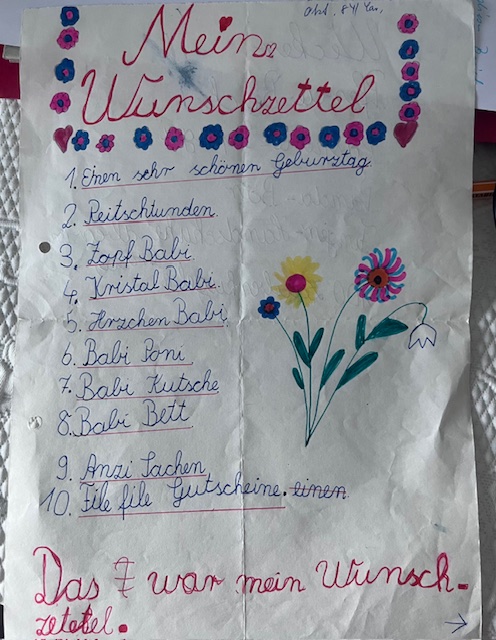 Mein
Wunschzettel
1. Einen sehr schönen Geburztag
2. Reitschtunden
3. Zopf Babi
4. Kristal Babi
5. Hrzchen Babi
6. Babi Poni
7. Babi Kutsche
8. Babi Bett
9. Anzi Sachen
10. File file Gutscheine. einen
Das war mein Wunsch-
zetetel.